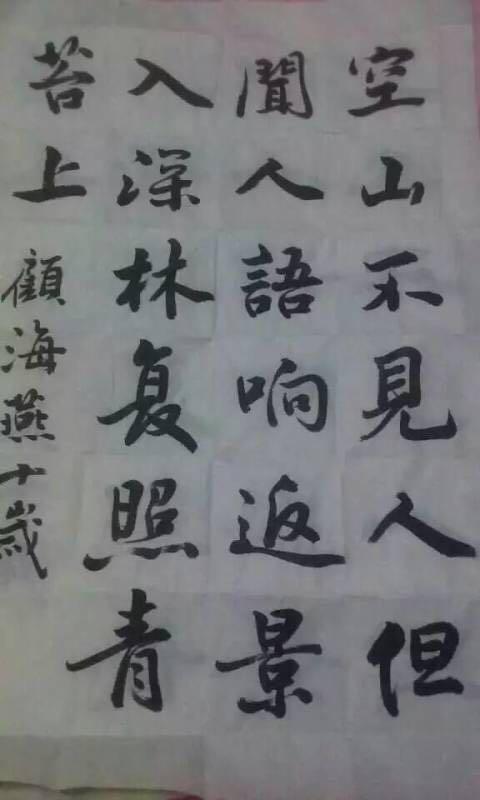 空山不見人但
聞人語响返景
入深林复照青
苔上
顧海燕十歲